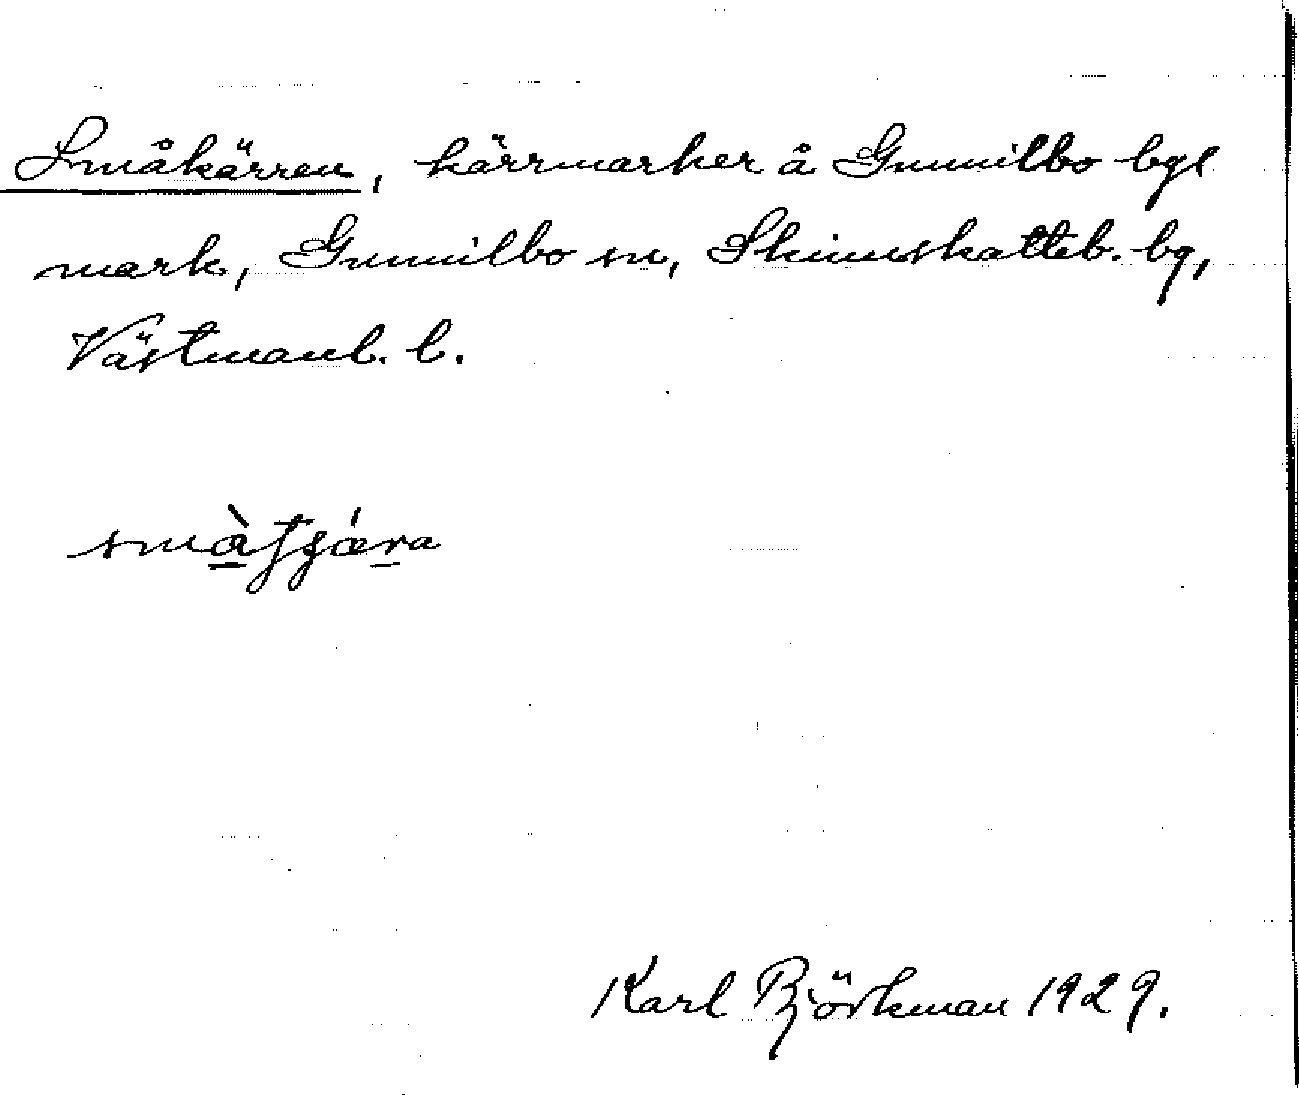 Småkärren, kärrmarker å Gunnilbo bys
mark, Gunnilbo sn, Skinnskatteb. bg,
Västmanl. l.
Karl Björkman 1929.